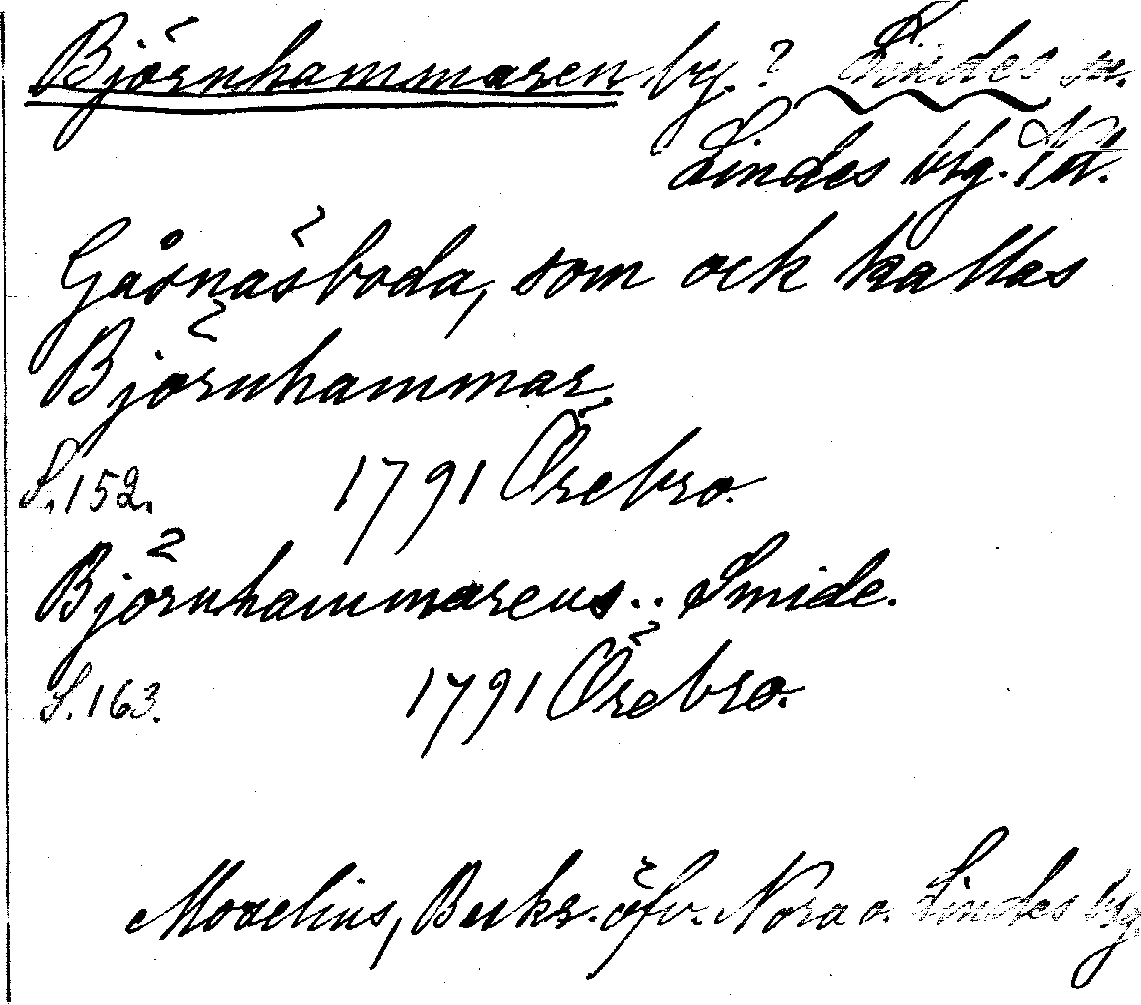 Björnhammaren by.? Lindes sn.
Lindes blg. Vtl.
Gåsnäsboda, som ock kallas
Björnhammar
S. 152. 1791 Örebro.
Björnhammarens .. Smide.
S. 163. 1791 Örebro.
Moraelius, Beskr. öfv. Nora o. Lindes blg